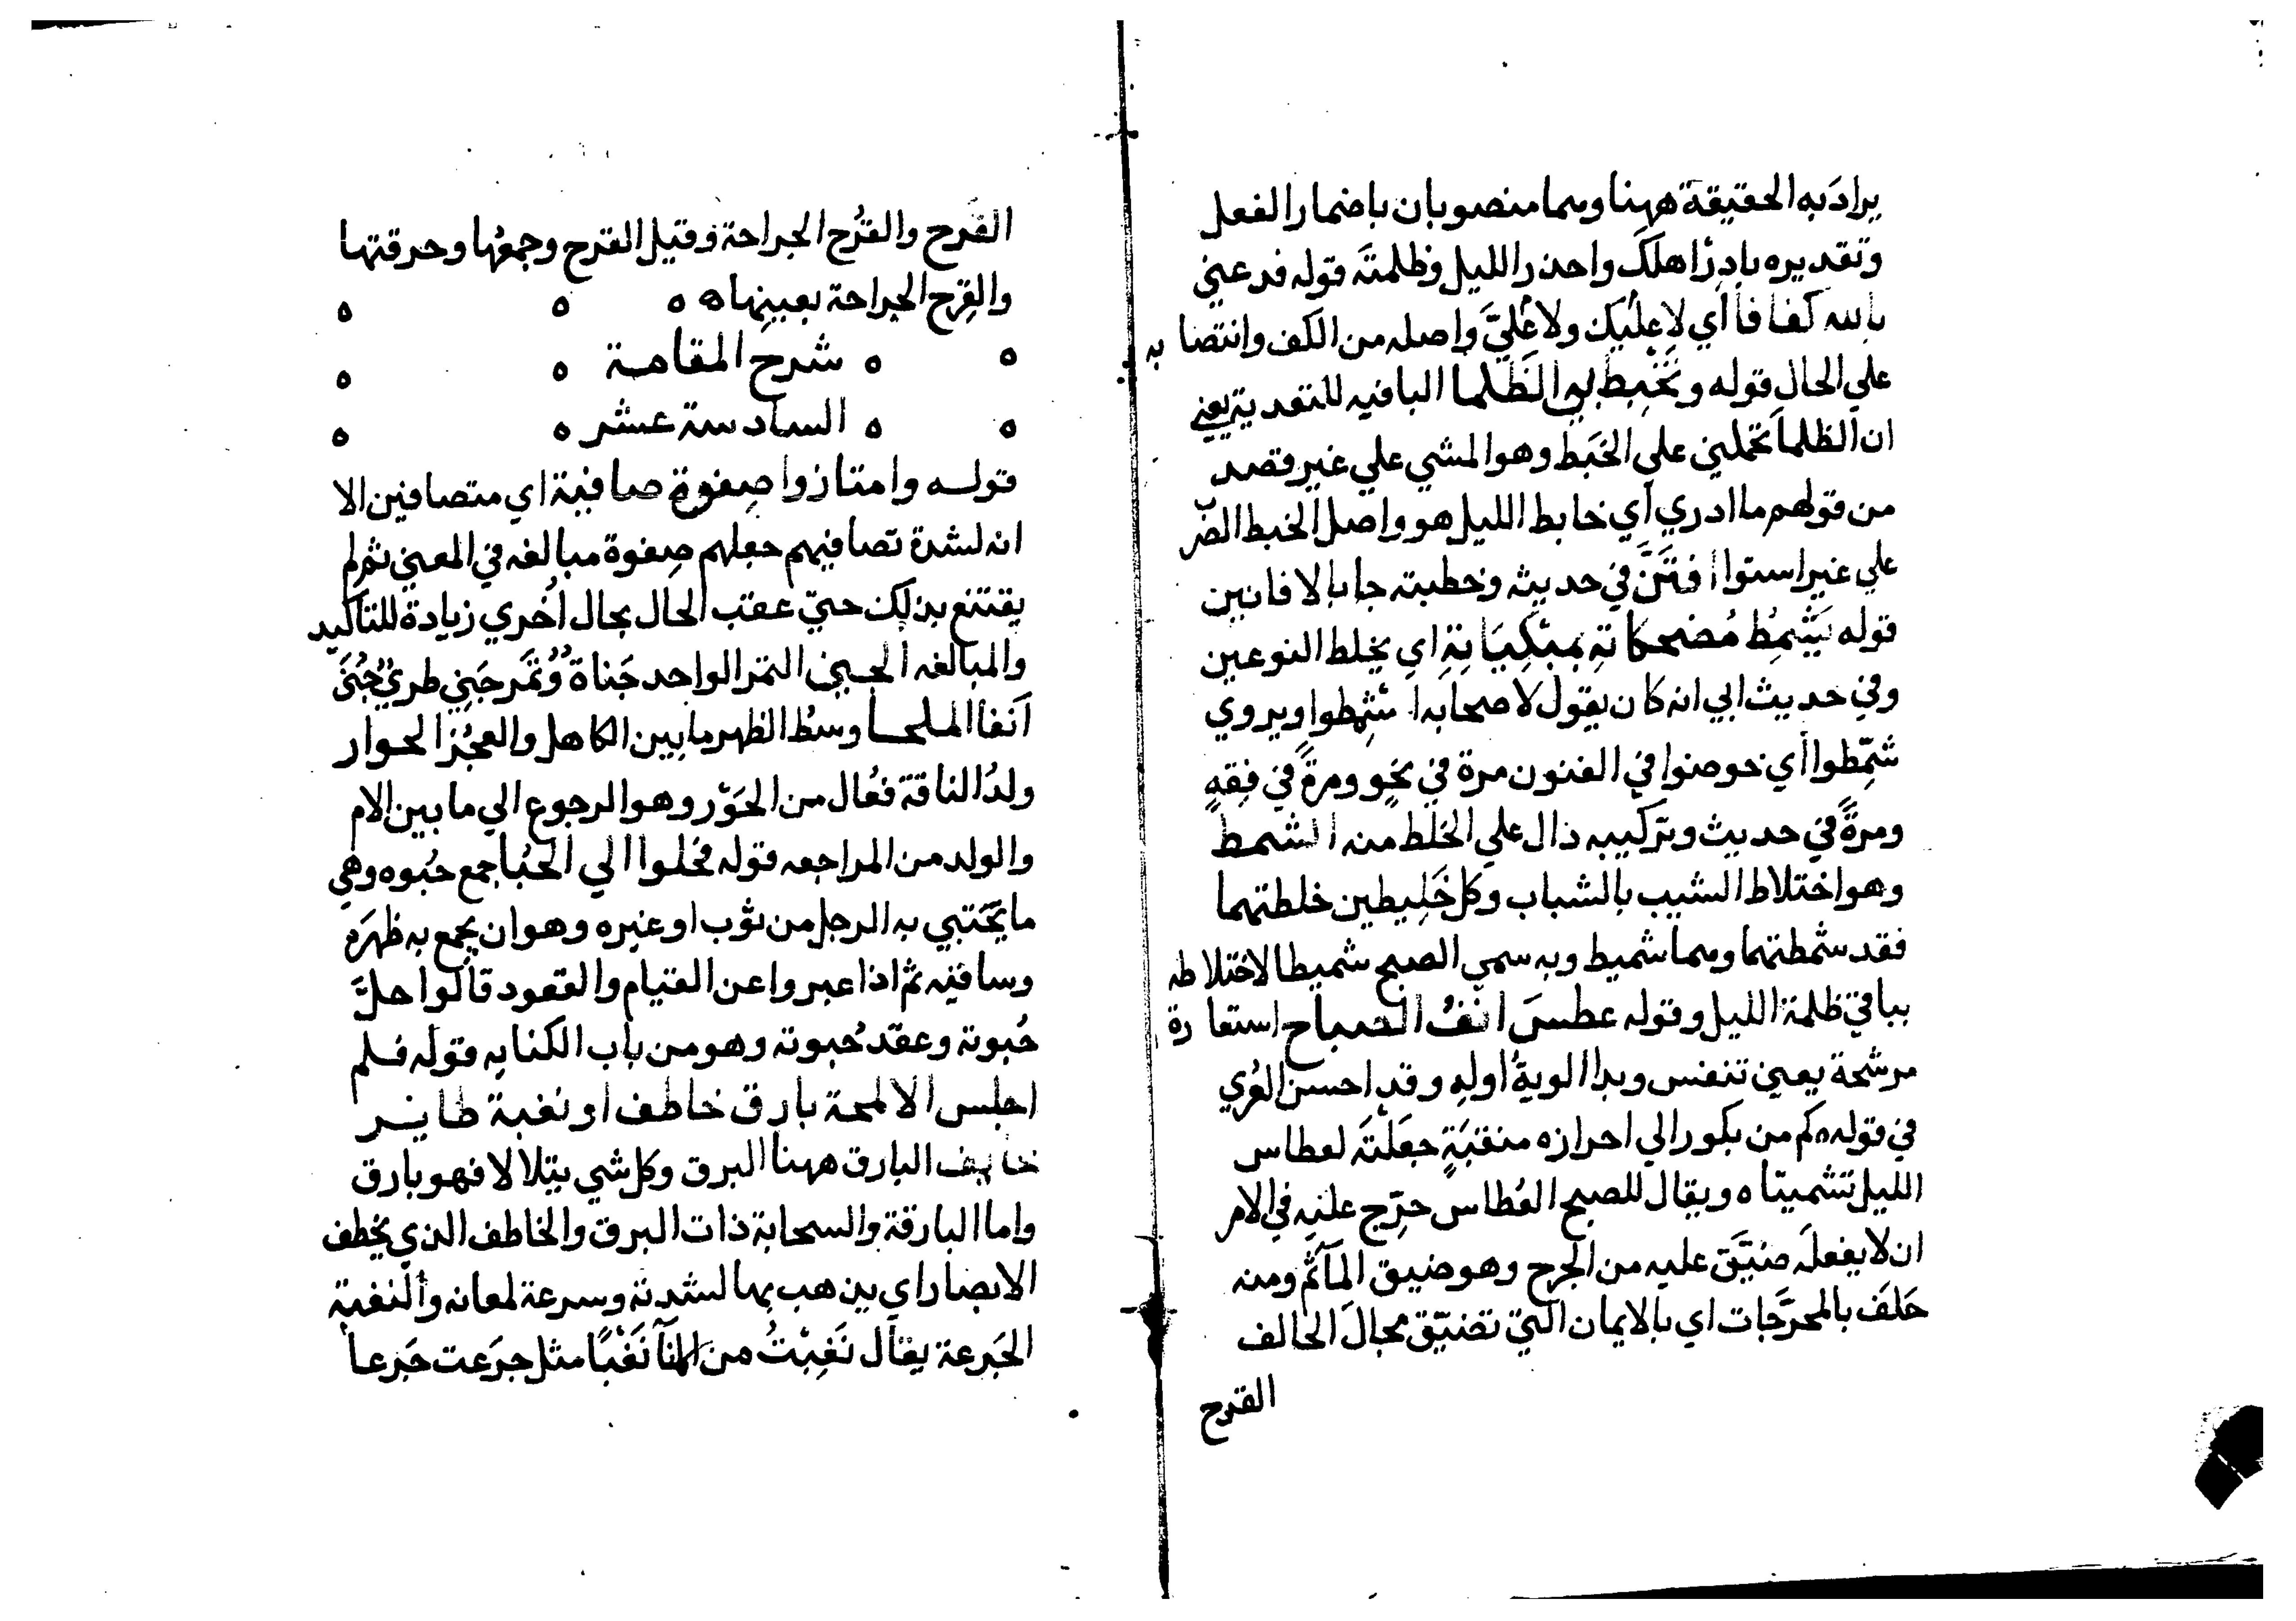 يرادَ به الحقيقة ههنا وهما منصوبان باضمار الفعل
وتقديره بادِرْ اهلَكَ واحذر الليل وظلمتَه قوله فدعني
بالله كفافا أي لا عليك ولا عليَّ واصله من الكف وانتصابه
علي الحال قوله وتَخْبِط بي الظَلما البا فيه للتعدية يعني
ان الظلما تحملني علي الخَبط وهو المشي علي غير قصد
من قولهم ما ادري أي خابط الليل هو واصل الخبط الضرب
علي غير استوا افتَنَّ في حديثه وخطبته جا بالافانين
قوله يَشْمِطُ مُضحكاتِه بمبْكِيَاتِه اي يخلط النوعين
وفي حديث ابي انه كان يقول لاصحابه اشْمِطوا ويروي
شَمِّطوا أي خوضوا في الفنون مرة في نحوٍ ومرةً في فِقهٍ
ومرةً في حديث وتركيبه دال علي الخلط منه الشمط
وهو اختلاط الشيب بالشباب وكل خَلِيطين خلطتهما
فقد شمطتهما وهما شميط وبه سمي الصبح شميطا لاختلاطه
بباقي ظلمة الليل وقوله عطسَ انفُ الصباح استعارة
مرشحة يعني تنفس وبدا الويةُ اولِه وقد احسن الغزي
في قوله ه كم من بكورٍ الي احرازه منقبَةٍ جعَلْتَه لعطاس
الليل تشميتا ه ويقال للصبح العُطاس حرِّج عليه في الامر
ان لا يفعلَه ضيَّق عليه من الحرج وهو ضيق المآثم ومنه
حَلَفَ بالمحرَّجات اي بالايمان التي تضيّق مجالَ الحالف
القرح
القَرح والقُرح الجراحة وقيل القرح وجعُها وحرقتها
والقرح الجراحة بعينها ه ه ه ه
ه ه شرح المقامة ه ه
ه ه السادسة عشر ه ه
قوله وامتازوا صِفوةً صافيةً اي متصافين الا
انه لشدة تصافيهم جعلهم صِفوة مبالغه في المعني ثم لم
يقتنع بذلك حتي عقب الحال بحال اُخري زيادة للتاكيد
والمبالغه الجني التمر الواحد جَناة وتَمر جَنِي طريٌّ جُنيَ
آنفا الملحا وسْط الظهر ما بين الكاهل والعجُز الحوار
ولدُ الناقة فُعال من الحَوْر وهو الرجوع الي ما بين الام
والولد من المراجعه قوله فحلوا الي الحُبا جمع حُبوه وهي
ما يَحْتبي به الرجل من ثوب او غيره وهو ان يجمع به ظهرَه
وساقيْه ثم اذا عبروا عن القيام والقعود قالوا حلَّ
حُبوته وعقد حُبوته وهو من باب الكنايه قوله فلم
اجلس الا لمحة بارق خاطف او نغبة طاير
خايف البارق ههنا البرق وكل شي يتلالا فهو بارق
واما البارقة والسحابة ذات البرق والخاطف الذي يخطف
الابصار اي يذهب بها لشدته وسرعة لمعانه والنغبة
الجَرعة يقال نَغِبْتُ من المآ نَغْبًا مثل جرَعت جَرعا